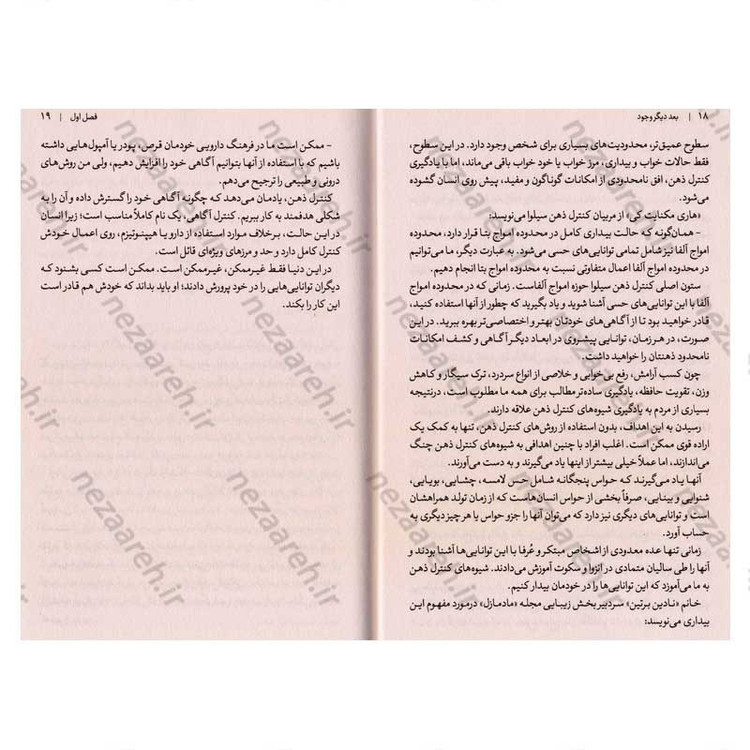 ۱۸ | بعد دیگر وجود
سطوح عمیق‌تر، محدودیت‌های بسیاری برای شخص وجود دارد. در این سطوح،
فقط حالات خواب و بیداری، مرز خواب یا خود خواب باقی می‌ماند، اما با یادگیری
کنترل ذهن، افق نامحدودی از امکانات گوناگون و مفید، پیش روی انسان گشوده
می‌شود.
«هاری مکنایت کی» از مربیان کنترل ذهن سیلوا می‌نویسد:
– همان‌گونه که حالت بیداری کامل در محدوده امواج بتا قرار دارد، محدوده
امواج آلفا نیز شامل تمامی توانایی‌های حسی می‌شود. به عبارت دیگر، ما می‌توانیم
در محدوده امواج آلفا اعمال متفاوتی نسبت به محدوده امواج بتا انجام دهیم.
ستون اصلی کنترل ذهن سیلوا حوزه امواج آلفاست. زمانی که در محدوده
آلفا با این توانایی‌های حسی آشنا شوید و یاد بگیرید که چطور از آنها استفاده کنید،
قادر خواهید بود تا از آگاهی‌های خودتان بهتر و اختصاصی‌تر بهره ببرید. در این
صورت، در هر زمان، توانایی پیشروی در ابعاد دیگر آگاهی و کشف امکانات
نامحدود ذهنتان را خواهید داشت.
چون کسب آرامش، رفع بی‌خوابی و خلاصی از انواع سردرد، ترک سیگار و کاهش
وزن، تقویت حافظه، یادگیری ساده‌تر مطالب برای همه ما مطلوب است، درنتیجه
بسیاری از مردم به یادگیری شیوه‌های کنترل ذهن علاقه دارند.
رسیدن به این اهداف، بدون استفاده از روش‌های کنترل ذهن، تنها به کمک یک
اراده قوی ممکن است. اغلب افراد با چنین اهدافی به شیوه‌های کنترل ذهن چنگ
می‌اندازند، اما عملاً خیلی بیشتر از اینها یاد می‌گیرند و به دست می‌آورند.
آنها یاد می‌گیرند که حواس پنجگانه شامل حس لامسه، چشایی، بویایی،
شنوایی و بینایی، صرفاً بخشی از حواس انسان‌هاست که از زمان تولد همراهشان
است و توانایی‌های دیگری نیز دارد که می‌توان آنها را جزو حواس یا هر چیز دیگری به
حساب آورد.
زمانی تنها عده معدودی از اشخاص مبتکر و عُرفا با این توانایی‌ها آشنا بودند و
آنها را طی سالیان متمادی در انزوا و سکوت آموزش می‌دادند. شیوه‌های کنترل ذهن
به ما می‌آموزد که این توانایی‌ها را در خودمان بیدار کنیم.
خانم «نادین برتین» سردبیر بخش زیبایی مجله «مادمازل» درمورد مفهوم این
بیداری می‌نویسد:
فصل اول | ۱۹
– ممکن است ما در فرهنگ دارویی خودمان قرص، پودر یا آمپول‌هایی داشته
باشیم که با استفاده از آنها بتوانیم آگاهی خود را افزایش دهیم، ولی من روش‌های
درونی و طبیعی را ترجیح می‌دهم.
کنترل ذهن، یادمان می‌دهد که چگونه آگاهی خود را گسترش داده و آن را به
شکلی هدفمند به کار ببریم. کنترل آگاهی، یک نام کاملاً مناسب است؛ زیرا انسان
در این حالت، برخلاف موارد استفاده از دارو یا هیپنوتیزم، روی اعمال خودش
کنترل کامل دارد و حد و مرزهای ویژه‌ای قائل است.
در این دنیا فقط غیرممکن، غیرممکن است. ممکن است کسی بشنود که
دیگران توانایی‌هایی را در خود پرورش دادند؛ او باید بداند که خودش هم قادر است
این کار را بکند.
nezaareh.ir